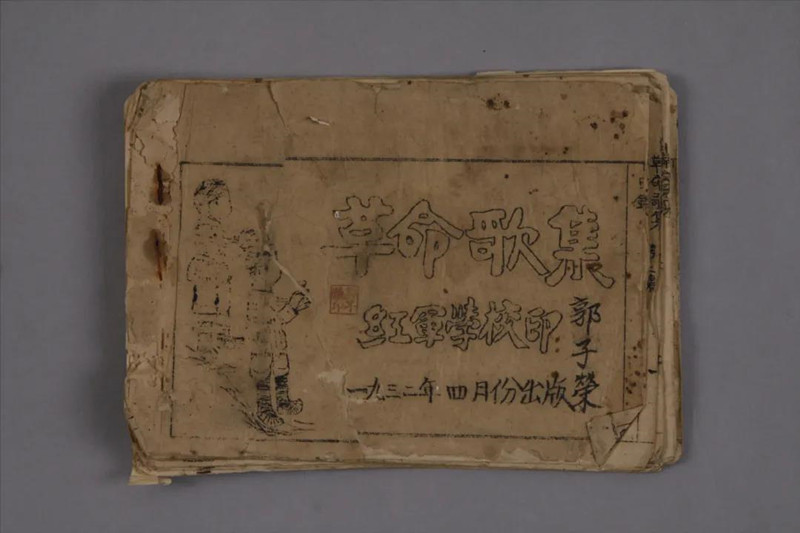 革命歌集
紅軍學校印
郭子榮
一九三二年四月份出版
革命歌集